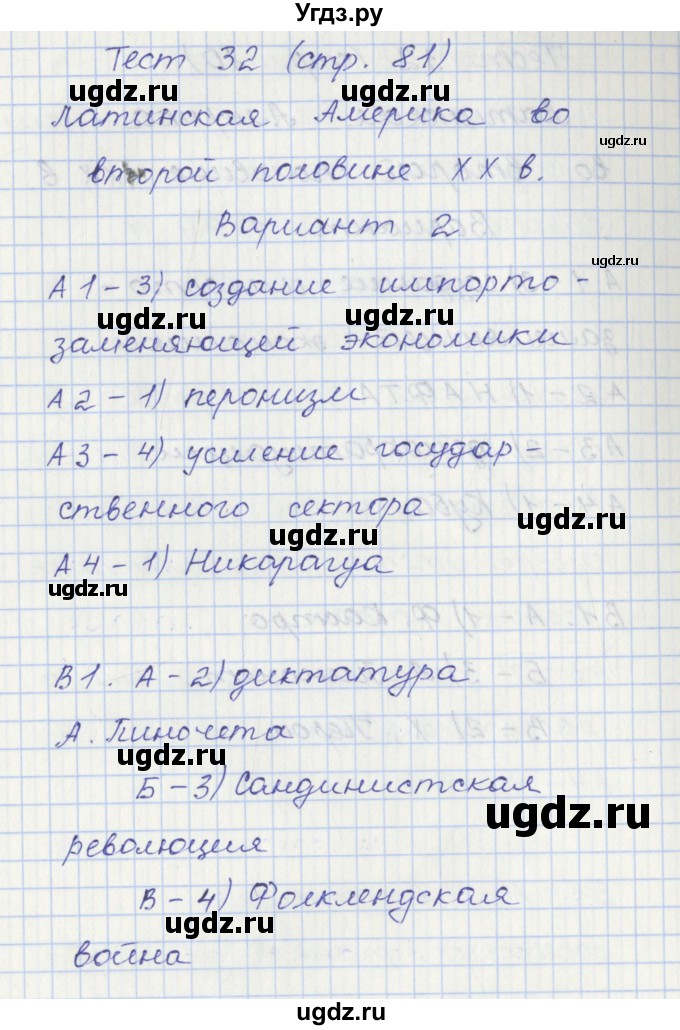 Угдз.ру
Тест 32 (стр. 81)
ugdz.ru ugdz.ru
Латинская Америка во
ugdz.ru
второй половине XX в.
Вариант 2
ugdz.ru
А1 - 3) создание импорто-
ugdz.ru ugdz.ru
заменяющей экономики
А2 - 1) перонизм
А3 - 4) усиление государ-
ственного сектора
ugdz.ru ugdz.ru
А4 - 1) Никарагуа
ugdz.ru
В1. А - 2) диктатура
ugdz.ru
А. Пиночета
ugdz.ru
Б - 3) Сандинистская
ugdz.ru ugdz.ru
революция
В - 4) Фолклендская
ugdz.ru
война
ugdz.ru